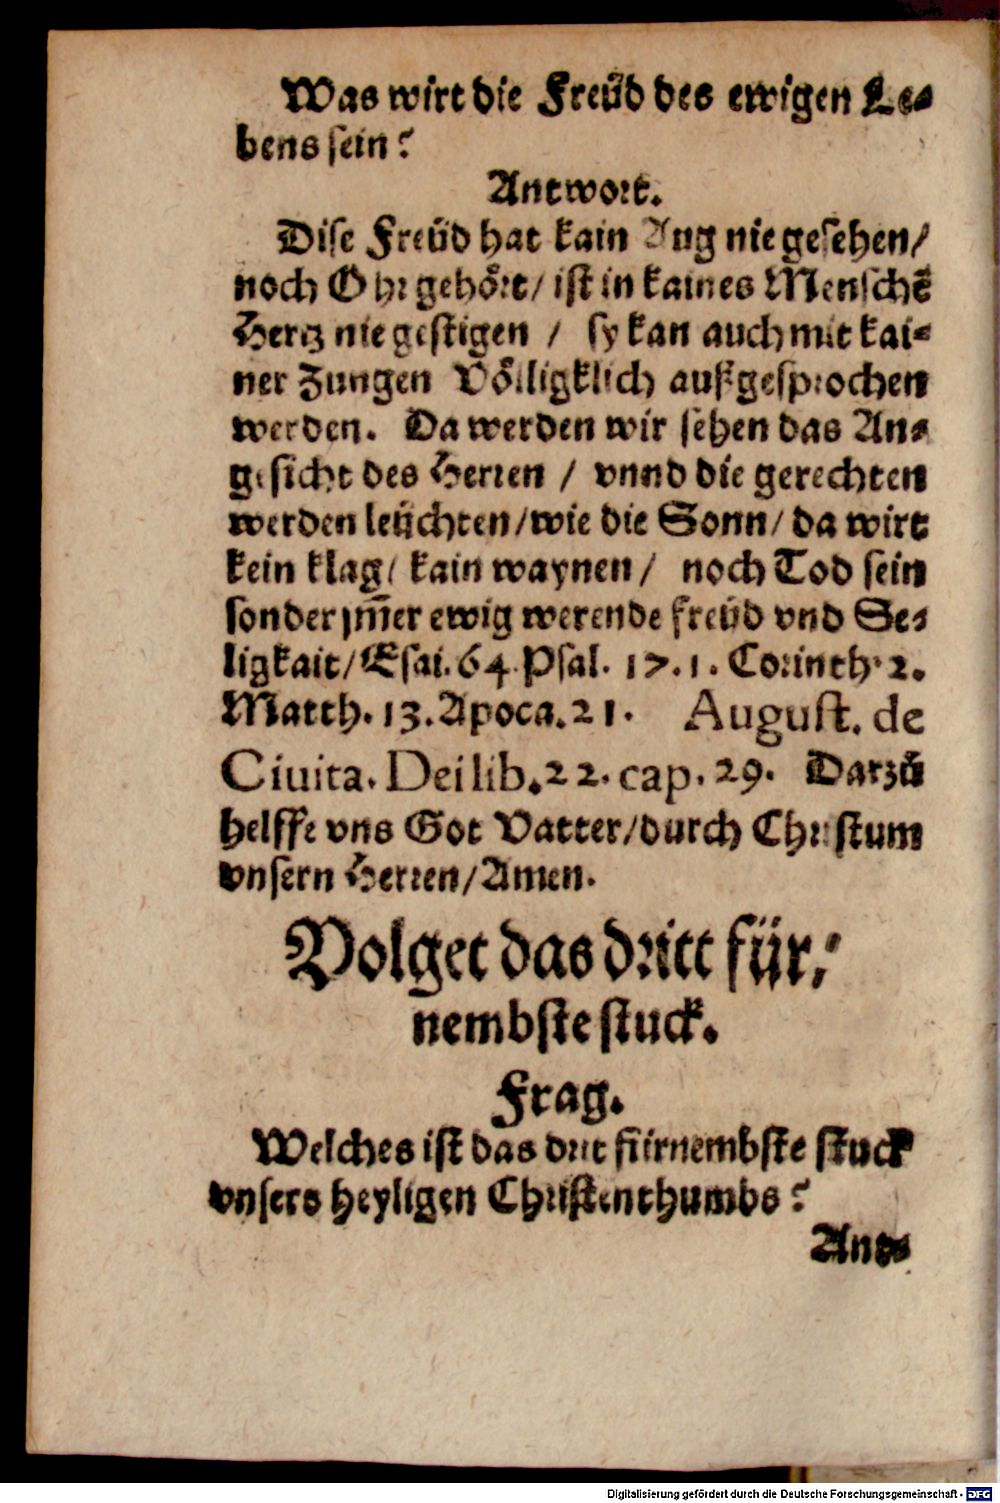 Was wirt die Freüd des ewigen Le⸗
bens sein?
Antwort.
Dise Freüd hat kain Aug nie gesehen/
noch Ohr gehört/ ist in kaines Menschē
Hertz nie gestigen / sy kan auch mit kai⸗
ner Zungen Völligklich außgesprochen
werden. Da werden wir sehen das An⸗
gesicht des Herren / vnnd die gerechten
werden leüchten/wie die Sonn/ da wirt
kein klag/ kain waynen/ noch Tod sein
sonder jm̄er ewig werende freüd vnd Se⸗
ligkait/Esai.64.Psal. 17.1. Corinth.2.
Matth.13.Apoca.21. August. de
Ciuita. Dei lib.22.cap.29. Darzů
helffe vns Got Vatter/durch Christum
vnsern Herren/Amen.
Volget das dritt für⸗
nembste stuck.
Frag.
Welches ist das drit fürnembste stuck
vnsers heyligen Christenthumbs?
Ant⸗
Digitalisierung gefördert durch die Deutsche Forschungsgemeinschaft - DFG